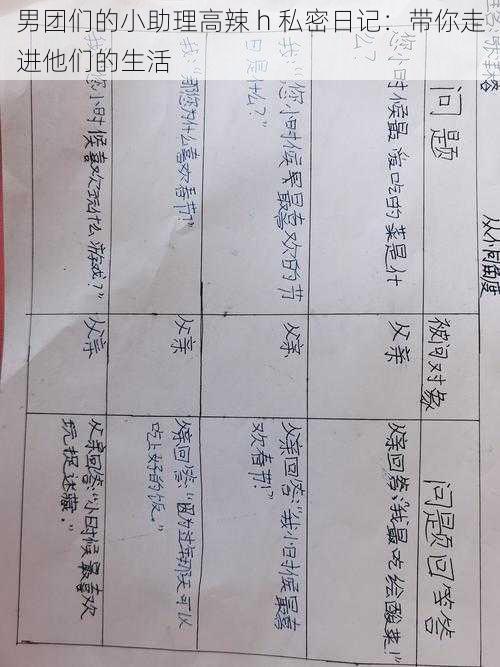 男团们的小助理高辣 h 私密日记：带你走
进他们的生活
从不同角度
问题
被问对象
问题回答
您小时候最爱吃的菜是什
么？
父亲
父亲回答："我最吃绘酸菜！"
我："您小时候最喜欢的节
日是什么？"
父亲
父亲回答："我小时候最喜
欢春节！"
我："那您为什么喜欢春节？"
父亲
父亲回答："因为过年那天可以
吃上好的饭。"
我："您小时候喜欢玩什么游戏？"
父亲
父亲回答："小时候最喜欢
玩捉迷藏。"